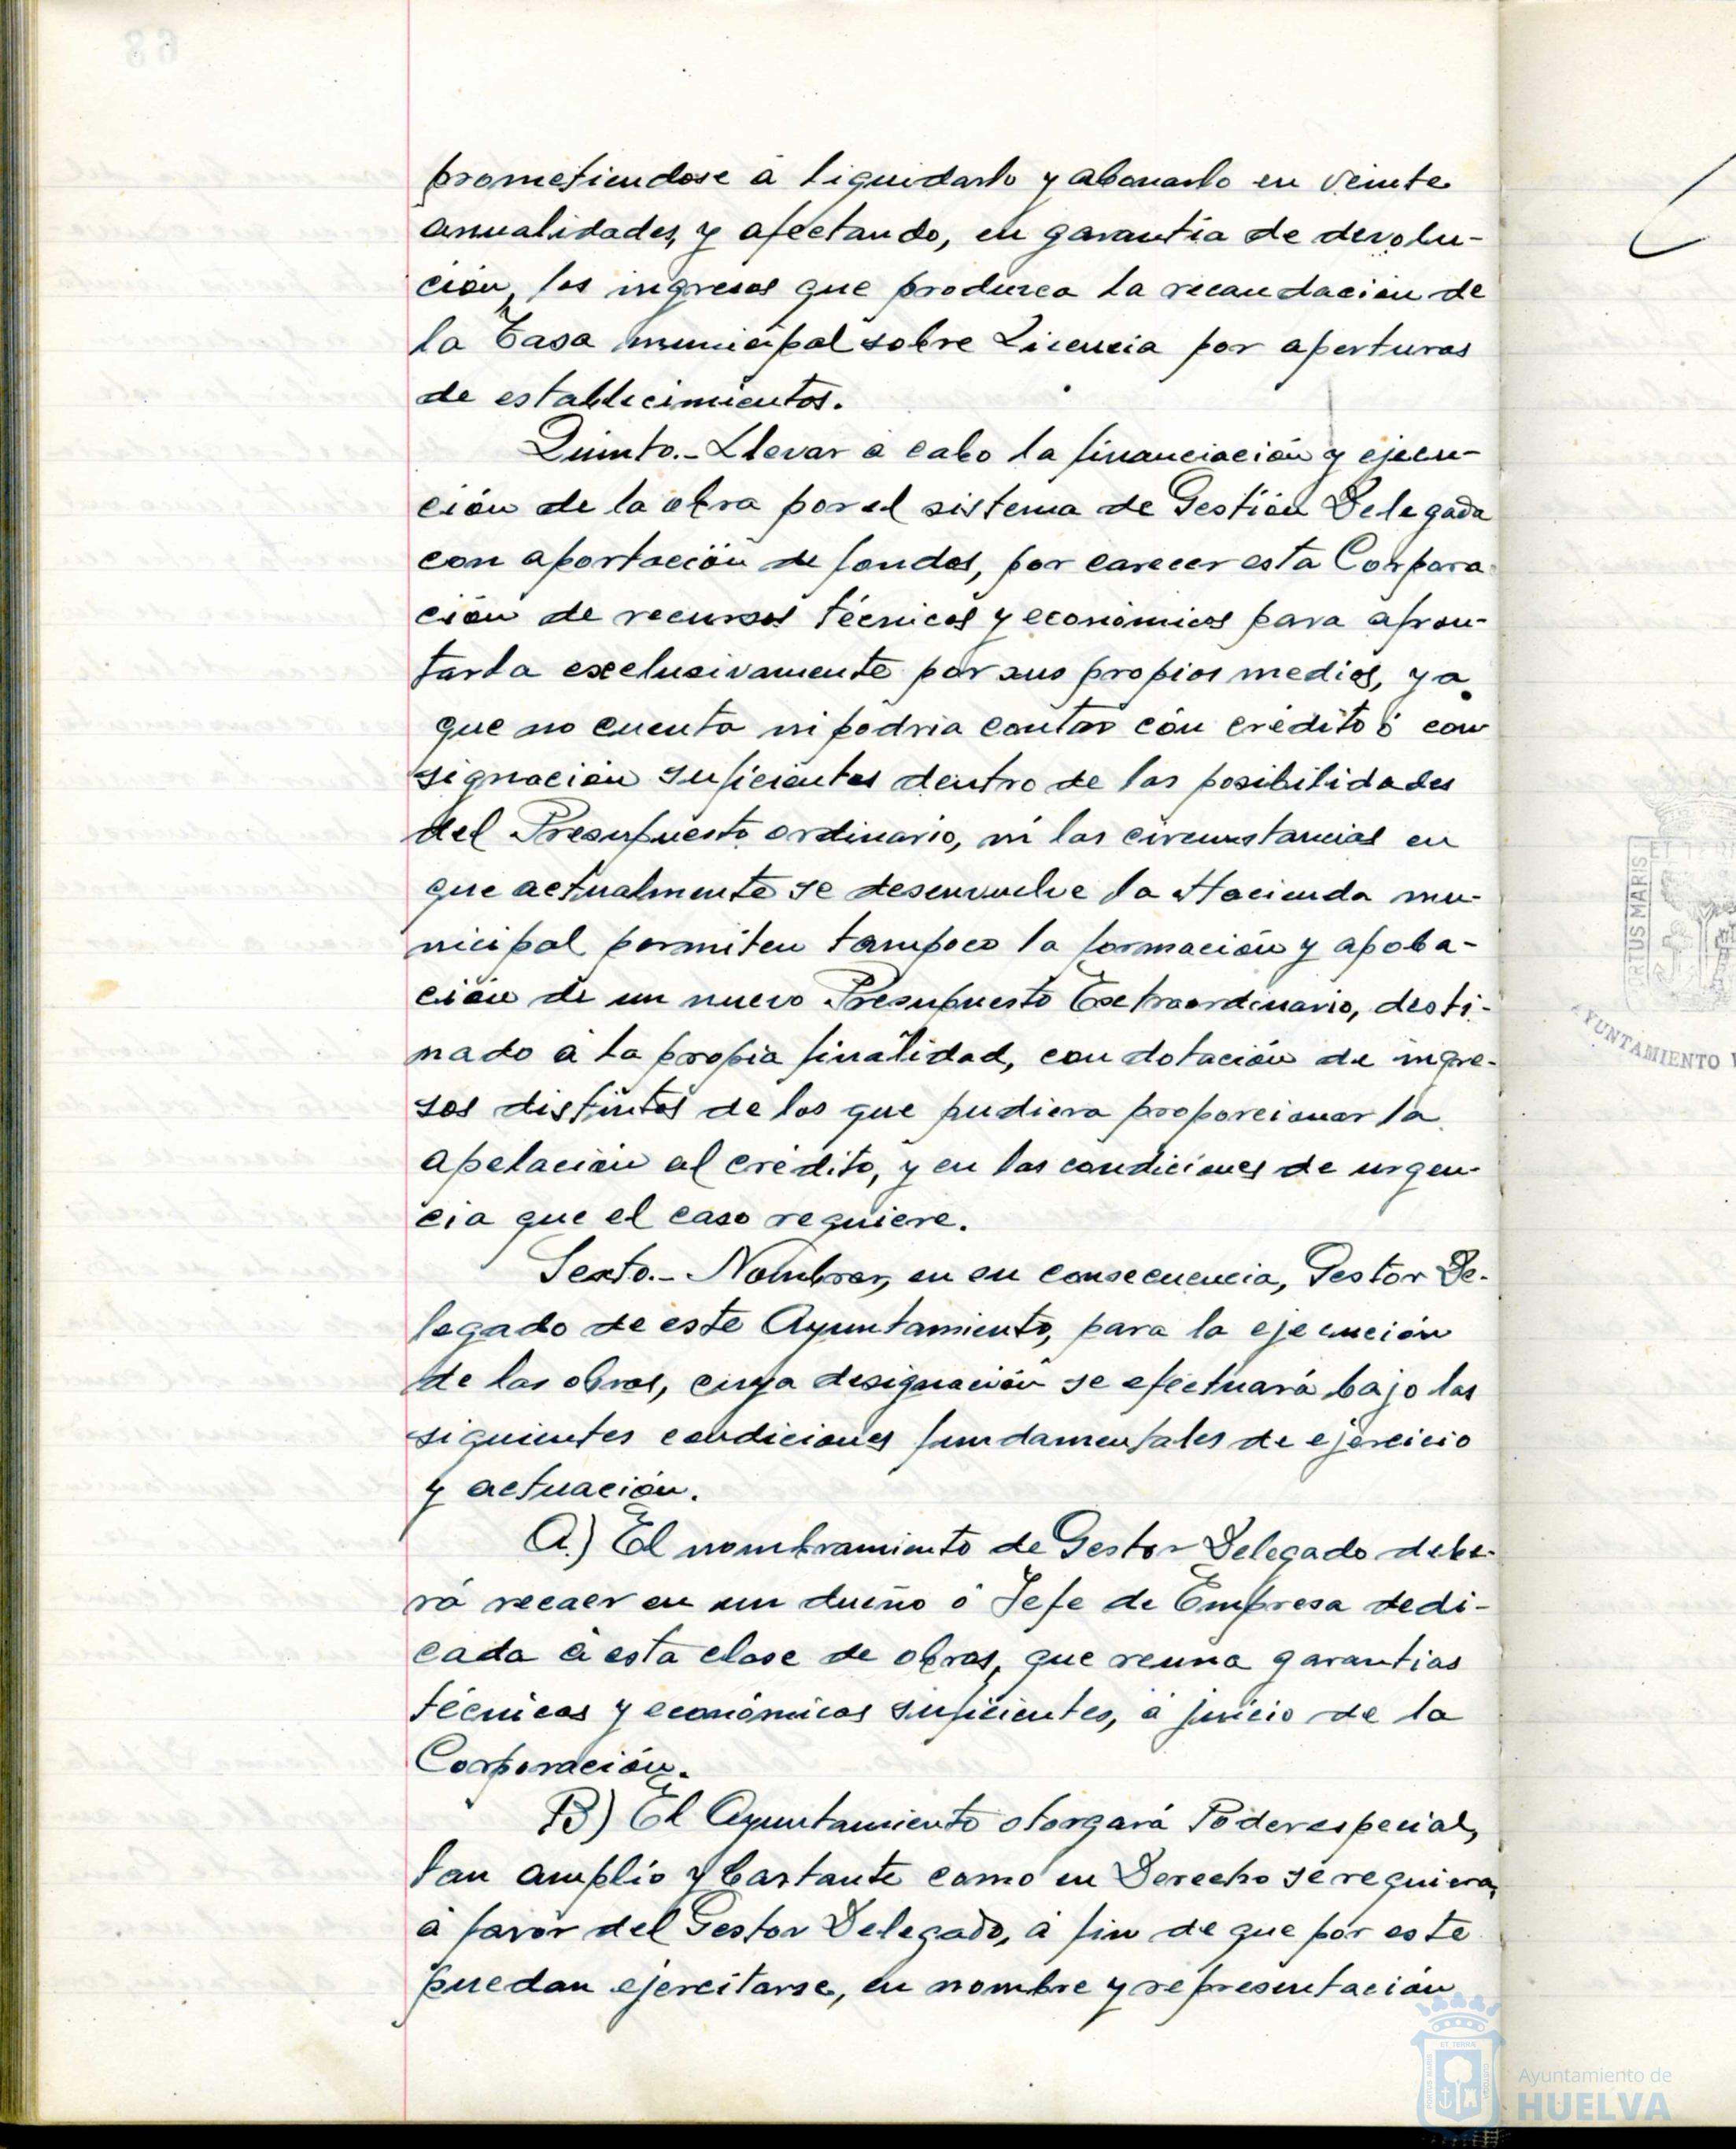 prometiendose á liquidarlo y abonarlo en veinte
anualidades, y afectando, en garantía de devolu-
ción, los ingresos que produzca la recaudación de
la Tasa municipal sobre Licencia por aperturas
de establecimientos.
Quinto.- Llevar á cabo la financiación y ejecu-
ción de la obra por el sistema de Gestión Delegada
con aportación de fondos, por carecer esta Corpora-
ción de recursos técnicos y económicos para afron-
tarla exclusivamente por sus propios medios, ya
que no cuenta ni podria contar con crédito ó con
signación suficientes dentro de las posibilidades
del Presupuesto ordinario, ni las circunstancias en
que actualmente se desenvuelve la Hacienda mu-
nicipal permiten tampoco la formación y apoba-
ción de un nuevo Presupuesto Extraordinario, desti-
nado á la propia finalidad, con dotación de ingre-
sos distintos de los que pudiera proporcionar la
apelación al crédito, y en las condiciones de urgen-
cia que el caso requiere.
Sexto.- Nombrar, en su consecuencia, Gestor De-
legado de este Ayuntamiento, para la ejecución
de las obras, cuya designación se efectuará bajo las
siguientes condiciones fundamentales de ejercicio
y actuación.
A.) El nombramiento de Gestor Delegado debe-
rá recaer en un dueño ó Jefe de Empresa dedi-
cada á esta clase de obras, que reuna garantias
técnicas y económicas suficientes, á juicio de la
Corporación.
B) El Ayuntamiento otorgará Poder especial,
tan amplio y bastante como en Derecho se requiera,
á favor del Gestor Delegado, á fin de que por este
puedan ejercitarse, en nombre y representación
PORTUS MARIS
AYUNTAMIENTO
Ayuntamiento de
HUELVA